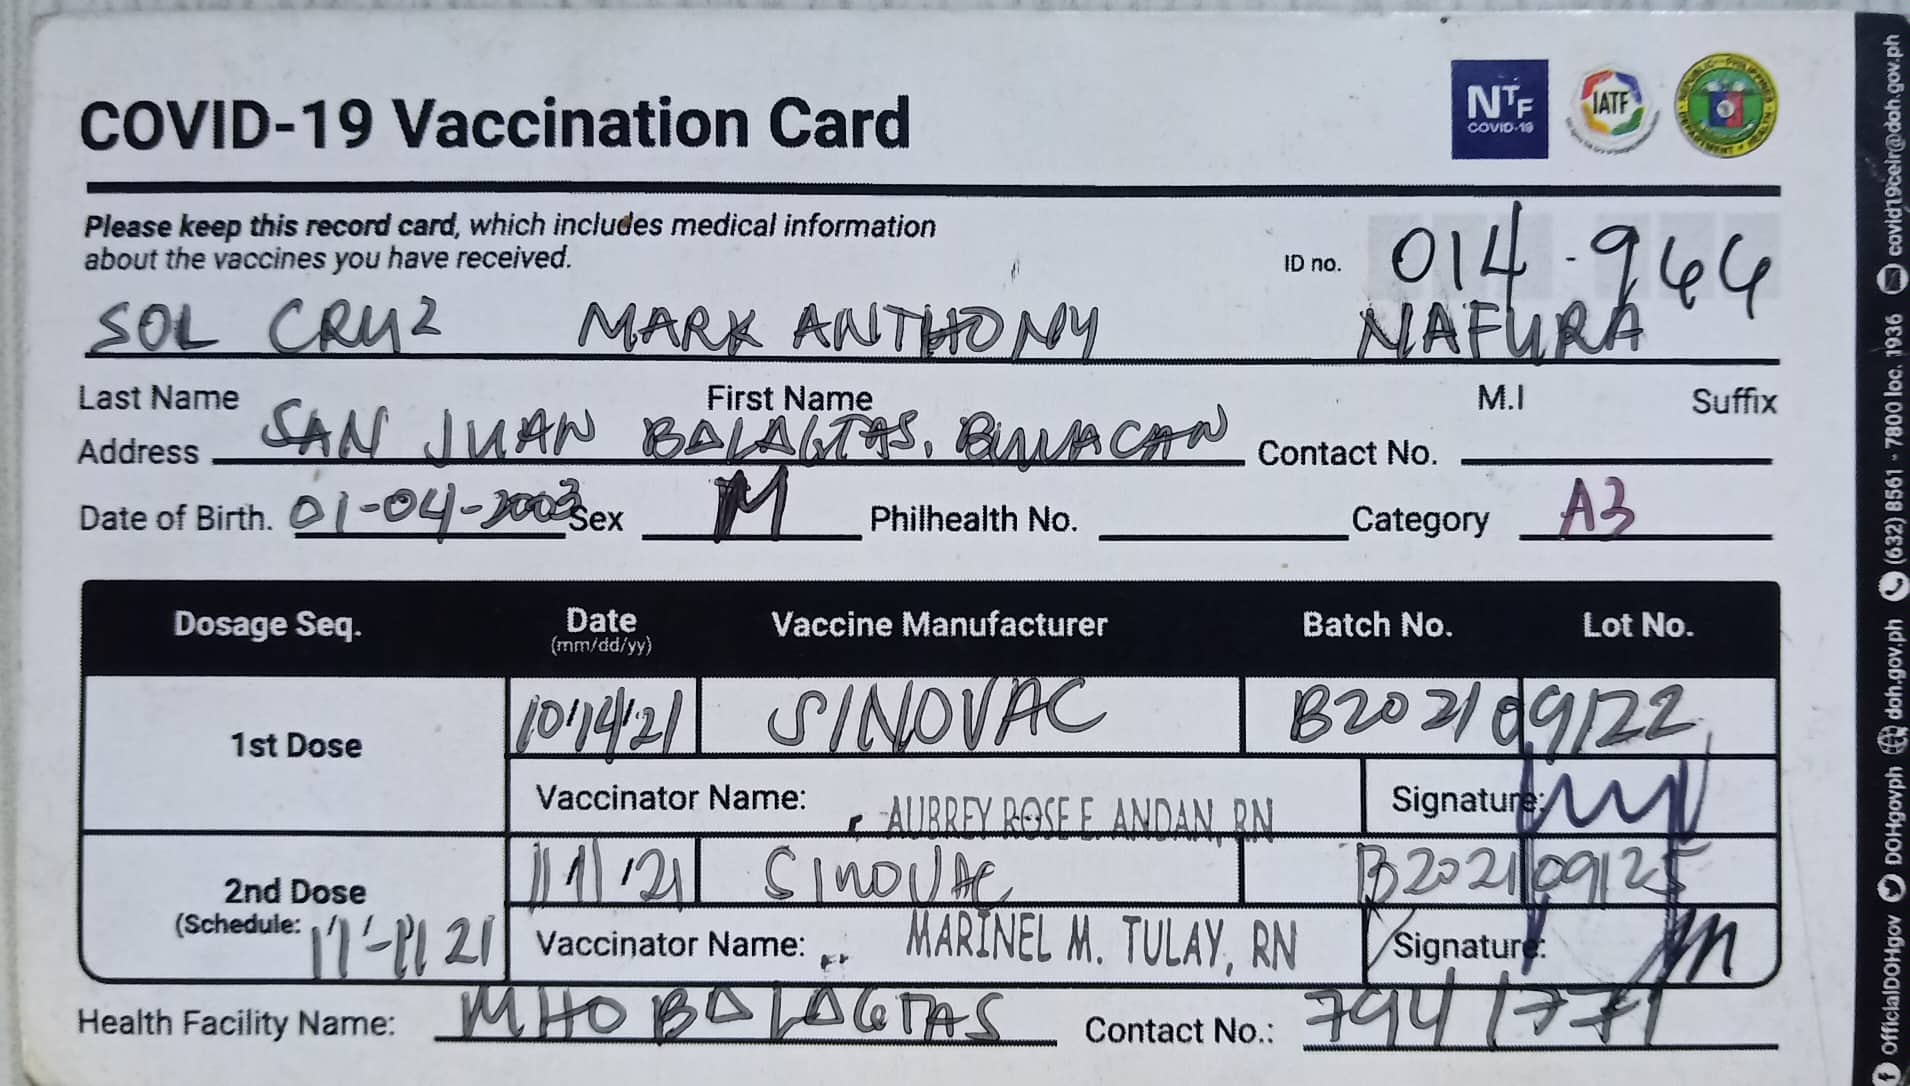 COVID-19 Vaccination Card
NTF COVID-19 IATF
Please keep this record card, which includes medical information
about the vaccines you have received.
ID no. 014-964
SOL CRUZ MARK ANTHONY NAFURA
Last Name First Name M.I Suffix
Address SAN JUAN BALAGTAS, BULACAN Contact No.
Date of Birth. 01-04-2003 Sex M Philhealth No. Category A3
Dosage Seq. Date Vaccine Manufacturer Batch No. Lot No.
(mm/dd/yy)
1st Dose 10/14/21 SINOVAC B202109122
Vaccinator Name: AUBREY ROSE E. ANDAN, RN Signature:
2nd Dose 11/11/21 SINOVAC B202109125
(Schedule: 21 Vaccinator Name: MARINEL M. TULAY, RN Signature:
Health Facility Name: MHO BALAGTAS Contact No.: 7941771
OfficialDOHgov DOHgovph doh.gov.ph (632) 8561 - 7800 loc. 1936 covid19ceir@doh.gov.ph